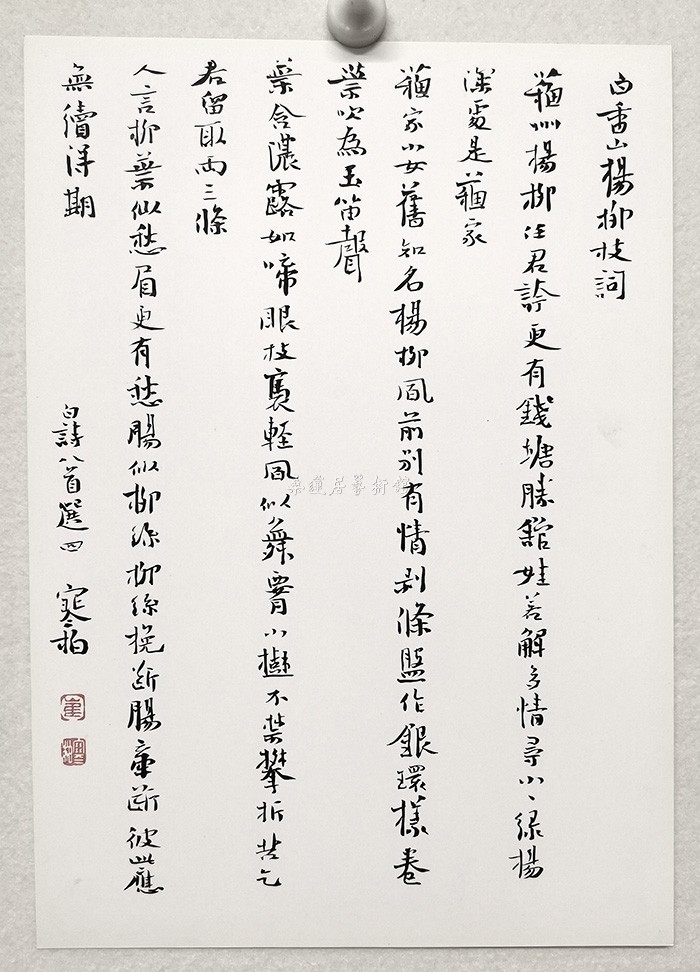 白香山楊柳枝詞
蘓州楊柳任君誇更有錢塘勝館娃若解多情尋小〻綠楊
深處是蘓家
蘓家小女舊知名楊柳風前別有情剥條盤作銀環樣卷
葉吹為玉笛聲
葉含濃露如啼眼枝裊軽風似舞胷小樹不禁攀折苦乞
君留取兩三條
人言柳葉似愁眉更有愁腸似柳絲柳絲挽斷腸牽斷彼此應
無續得期
白詩八首選四 寒柏